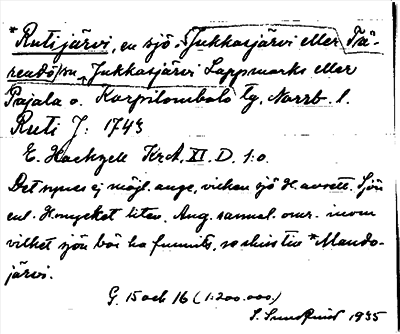 *Rutijärvi, en sjö i Jukkasjärvi eller Tä-
rendö sn, Jukkasjärvi Lappmarks eller
Pajala o. Korpilombolo tg, Norrb. l.
Ruti J: 1743
E. Hackzell KrA, XI. D. 1:0.
Det synes ej möjl. ange, vilken sjö H. avsett. Sjön
enl. H. mycket liten. Ang. sannol. omr. inom
vilket sjön bör ha funnits, se skiss till *Maado-
järvi.
G. 15 och 16 (1:200.000.)
S. Sundquist 1935